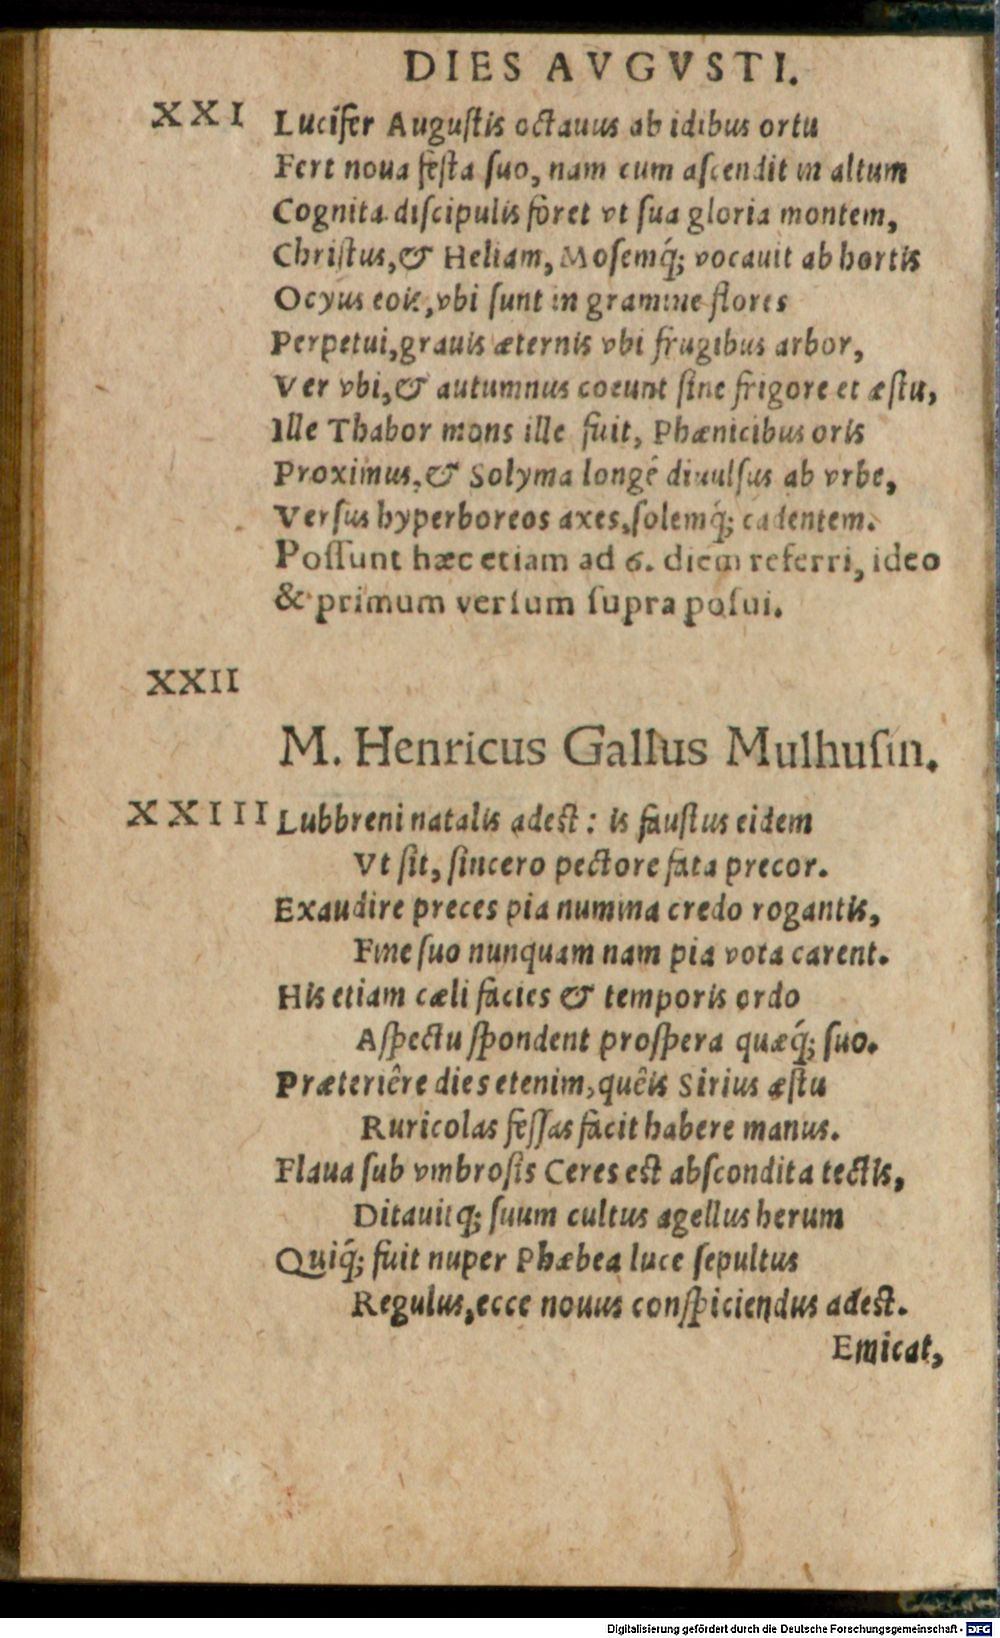 DIES AVGVSTI.
XXI Lucifer Auguſtis octauus ab idibus ortu
Fert noua feſta ſuo, nam cum aſcendit in altum
Cognita diſcipulis foret vt ſua gloria montem,
Chriſtus, & Heliam, Moſemq́; vocauit ab hortis
Ocyus eois, vbi ſunt in gramine flores
Perpetui, grauis æternis vbi frugibus arbor,
Ver vbi, & autumnus coeunt ſine frigore et æſtu,
Ille Thabor mons ille fuit, Phænicibus oris
Proximus, & Solyma longé diuulſus ab vrbe,
Verſus hyperboreos axes, ſolemq́; cadentem.
Poſſunt hæc etiam ad 6. diem referri, ideo
& primum verſum ſupra poſui.
XXII
M. Henricus Gallus Mulhuſin.
XXIII Lubbreni natalis adeſt: is fauſtus eidem
Vt ſit, ſincero pectore fata precor.
Exaudire preces pia numina credo rogantis,
Fine ſuo nunquam nam pia vota carent.
His etiam cæli facies & temporis ordo
Aſpectu ſpondent proſpera quæq́; ſuo.
Præteriêre dies etenim, quêis Sirius æſtu
Ruricolas feſſas facit habere manus.
Flaua ſub vmbroſis Ceres eſt abſcondita tectis,
Ditauitq; ſuum cultus agellus herum
Quiq́; fuit nuper Phæbea luce ſepultus
Regulus, ecce nouus conſpiciendus adeſt.
Emicat,
Digitalisierung gefördert durch die Deutsche Forschungsgemeinschaft - DFG